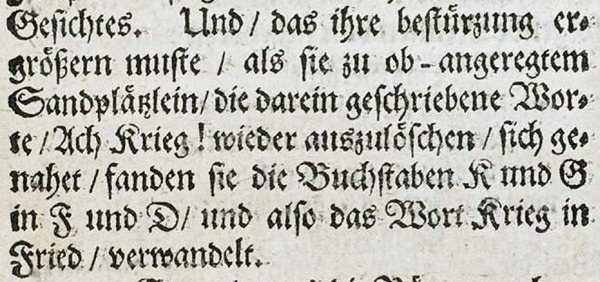 Gesichtes. Und / das ihre bestürzung er-
größern muste / als sie zu ob-angeregtem
Sandplätzlein / die darein geschriebene Wor-
te / Ach Krieg! wieder auszulöschen / sich ge-
nahet / fanden sie die Buchstaben K und G
in F und D / und also das Wort Krieg in
Fried / verwandelt.